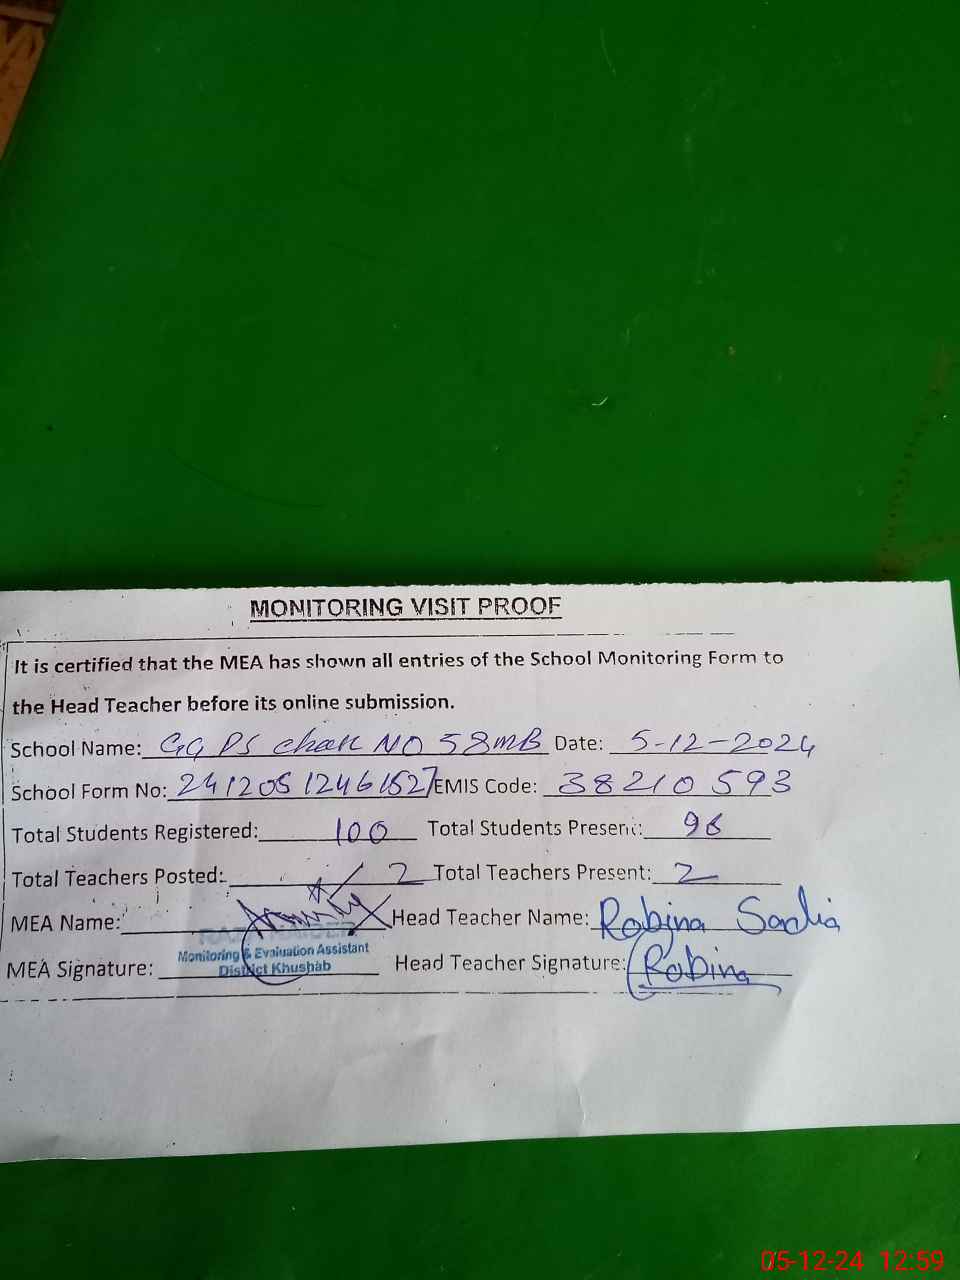 MONITORING VISIT PROOF
It is certified that the MEA has shown all entries of the School Monitoring Form to
the Head Teacher before its online submission.
School Name: GGPS chak NO 58MB Date: 5-12-2024
School Form No: 24120512461527 EMIS Code: 38210593
Total Students Registered: 100 Total Students Present: 96
Total Teachers Posted: 2 Total Teachers Present: 2
MEA Name: Head Teacher Name: Robina Sadia
Monitoring & Evaluation Assistant
District Khushab
MEA Signature: Head Teacher Signature: Robina
05-12-24 12:59